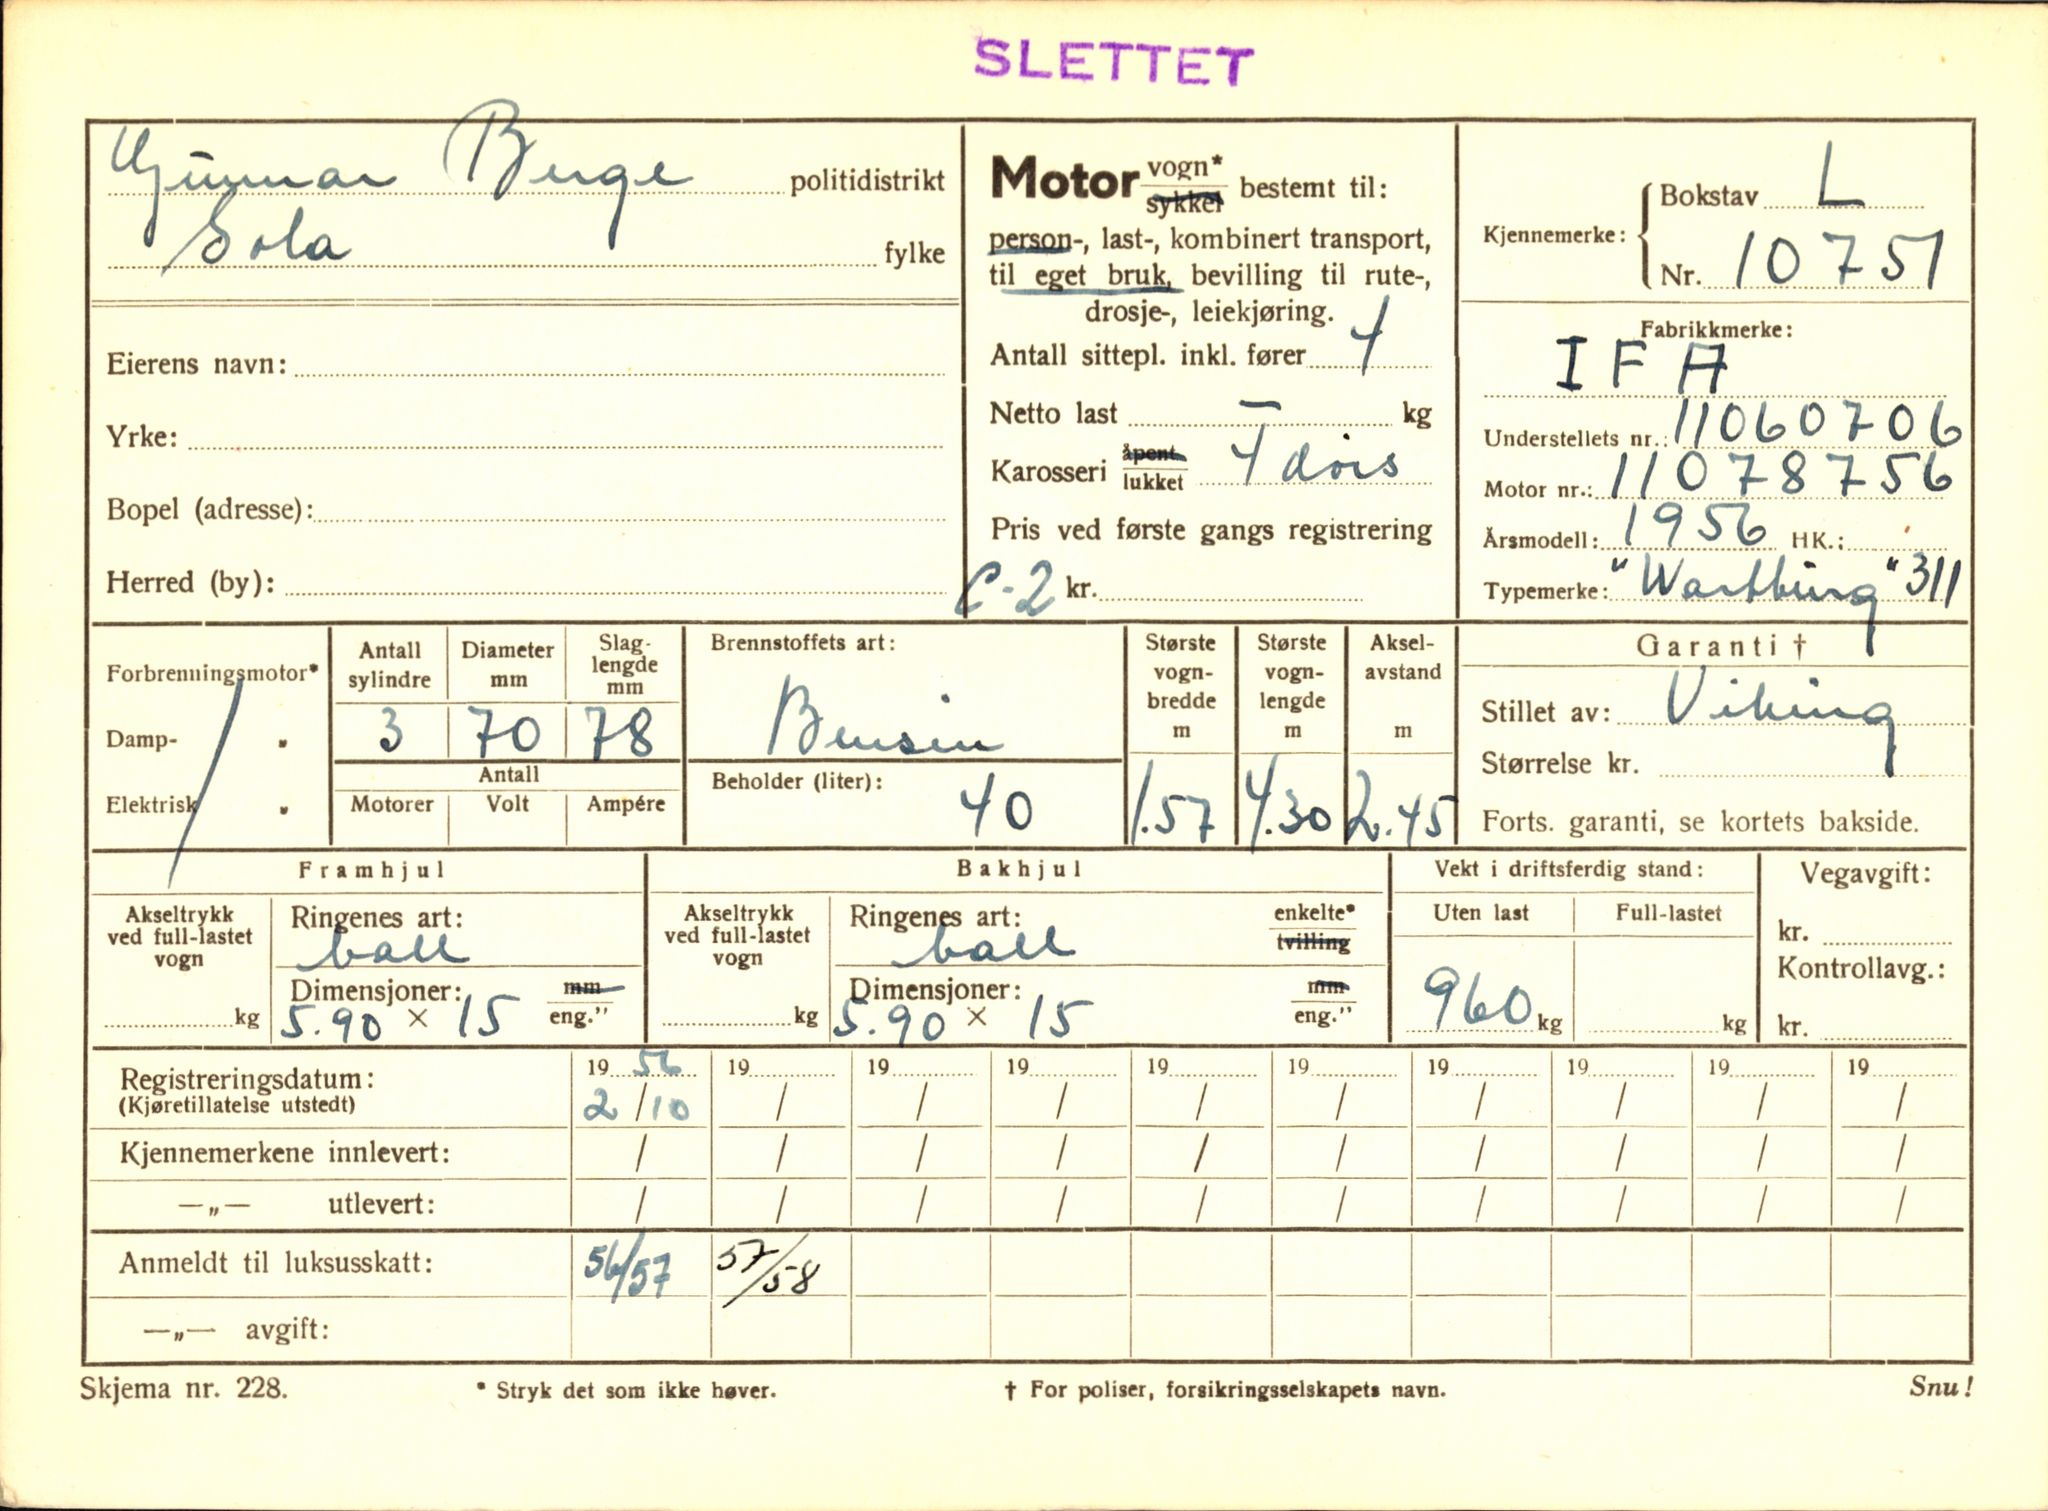 SLETTET
Gunnar Berge politidistrikt
Sola fylke
Eierens navn:
Yrke:
Bopel (adresse):
Herred (by):
Motor vogn* sykkel bestemt til:
person-, last-, kombinert transport,
til eget bruk, bevilling til rute-,
drosje-, leiekjøring.
Antall sittepl. inkl. fører 4
Netto last — kg
Karosseri åpent lukket 4 dørs
Pris ved første gangs registrering
C-2 kr.
Kjennemerke: Bokstav L
Nr. 10751
Fabrikkmerke:
IFA
Understellets nr.: 11060706
Motor nr.: 11078756
Årsmodell: 1956 HK.:
Typemerke: "Wartburg" 311
Forbrenningsmotor*
Damp- "
Elektrisk "
Antall sylindre
Diameter mm
Slag-lengde mm
3 70 78
Antall
Motorer Volt Ampére
Brennstoffets art:
Bensin
Beholder (liter):
40
Største vogn-bredde m
1.57
Største vogn-lengde m
4.30
Aksel-avstand m
2.45
Garanti †
Stillet av: Viking
Størrelse kr.
Forts. garanti, se kortets bakside.
Framhjul
Akseltrykk ved full-lastet vogn
kg
Ringenes art:
ball
Dimensjoner: mm
5.90 × 15 eng."
Bakhjul
Akseltrykk ved full-lastet vogn
kg
Ringenes art: enkelte*
ball tvilling
Dimensjoner: mm
5.90 × 15 eng."
Vekt i driftsferdig stand:
Uten last Full-lastet
960 kg kg
Vegavgift:
kr.
Kontrollavg.:
kr.
Registreringsdatum: 19 56 19 19 19 19 19 19 19 19 19
(Kjøretillatelse utstedt) 2/10 / / / / / / / / /
Kjennemerkene innlevert: / / / / / / / / / /
—„— utlevert: / / / / / / / / / /
Anmeldt til luksusskatt: 56/57 57/58
—„— avgift:
Skjema nr. 228. * Stryk det som ikke høver. † For poliser, forsikringsselskapets navn. Snu!